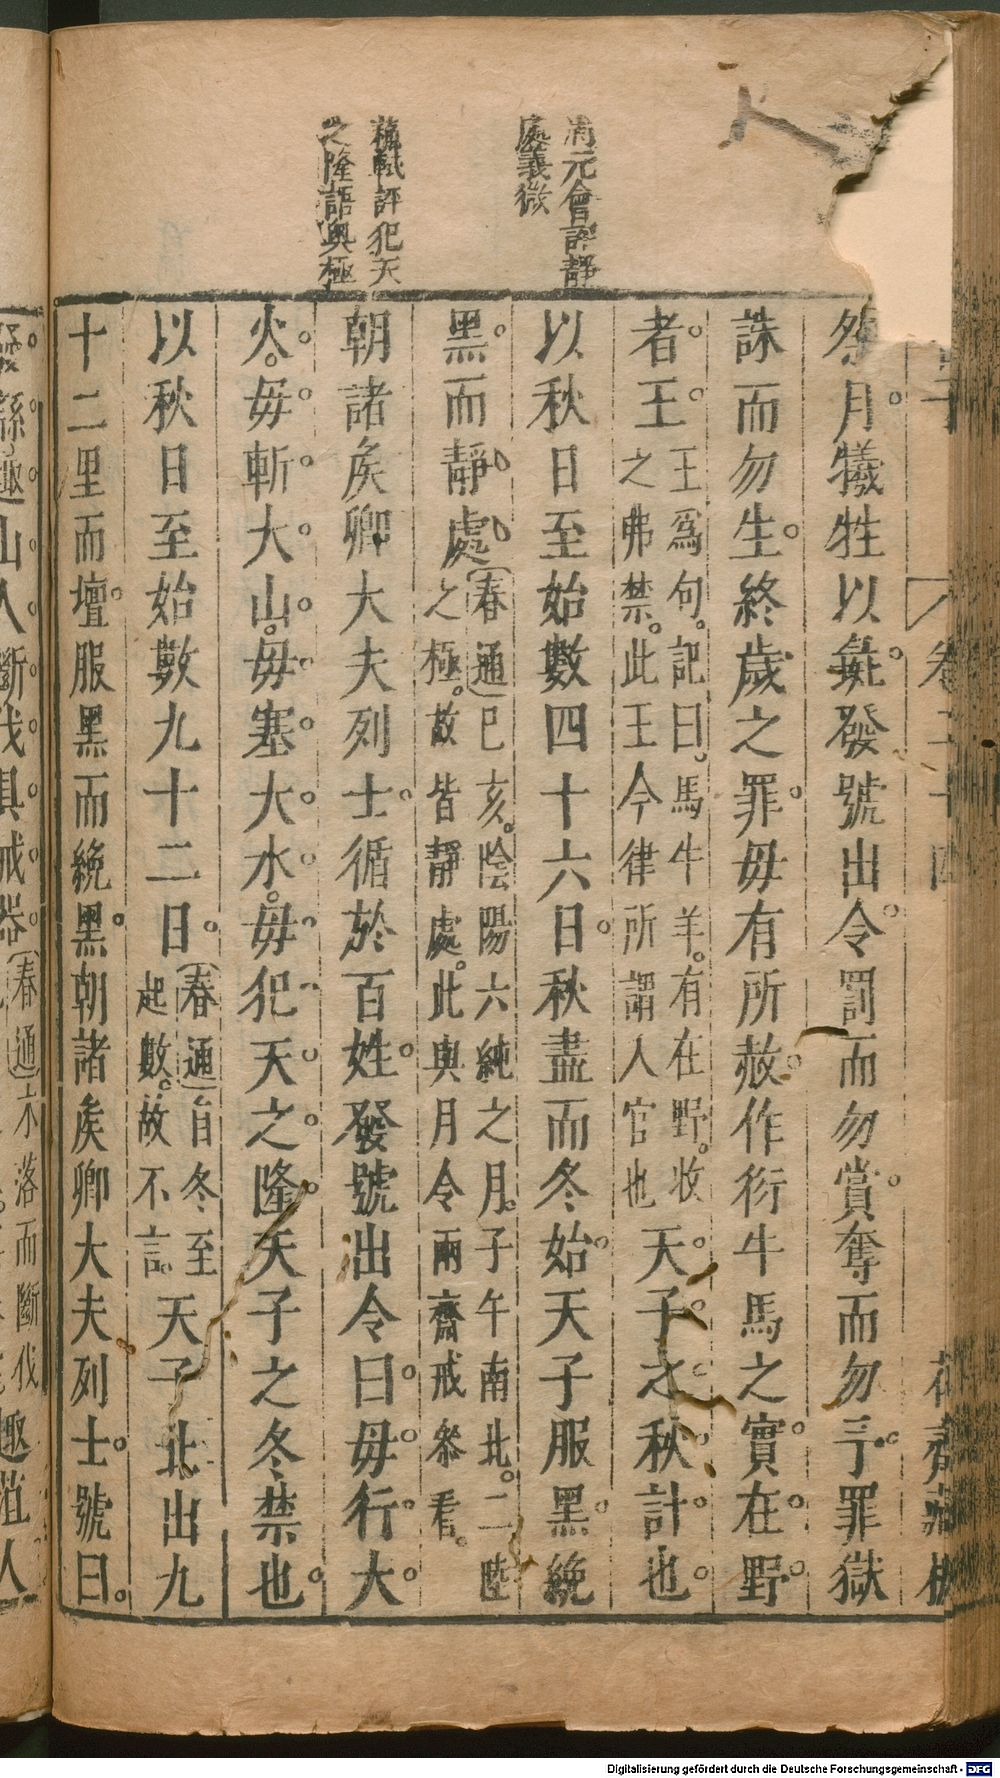 清元會評靜
處義微
蘇軾評犯天
之隆語奥極
子
卷二十四
花齋藏板
祭月犧牲以彘發號出令罰而勿賞奪而勿予罪獄
誅而勿生終歲之罪毋有所赦作衍牛馬之實在野
者王
王爲句記曰馬牛羊有在野收
之弗禁此王今律所謂人官也
天子之秋計也
以秋日至始數四十六日秋盡而冬始天子服黑絻
黑而靜處
春通巳亥陰陽六純之月子午南北二陸
之極故皆靜處此與月令兩齋戒叅看
朝諸矦卿大夫列士循於百姓發號出令曰毋行大
火毋斬大山毋塞大水毋犯天之隆天子之冬禁也
以秋日至始數九十二日
春通自冬至
起數故不言
天子北出九
十二里而壇服黑而絻黑朝諸矦卿大夫列士號曰
發繇趣山人斷伐具械器
春通木落而斷伐
趣菹人
Digitalisierung gefördert durch die Deutsche Forschungsgemeinschaft - DFG